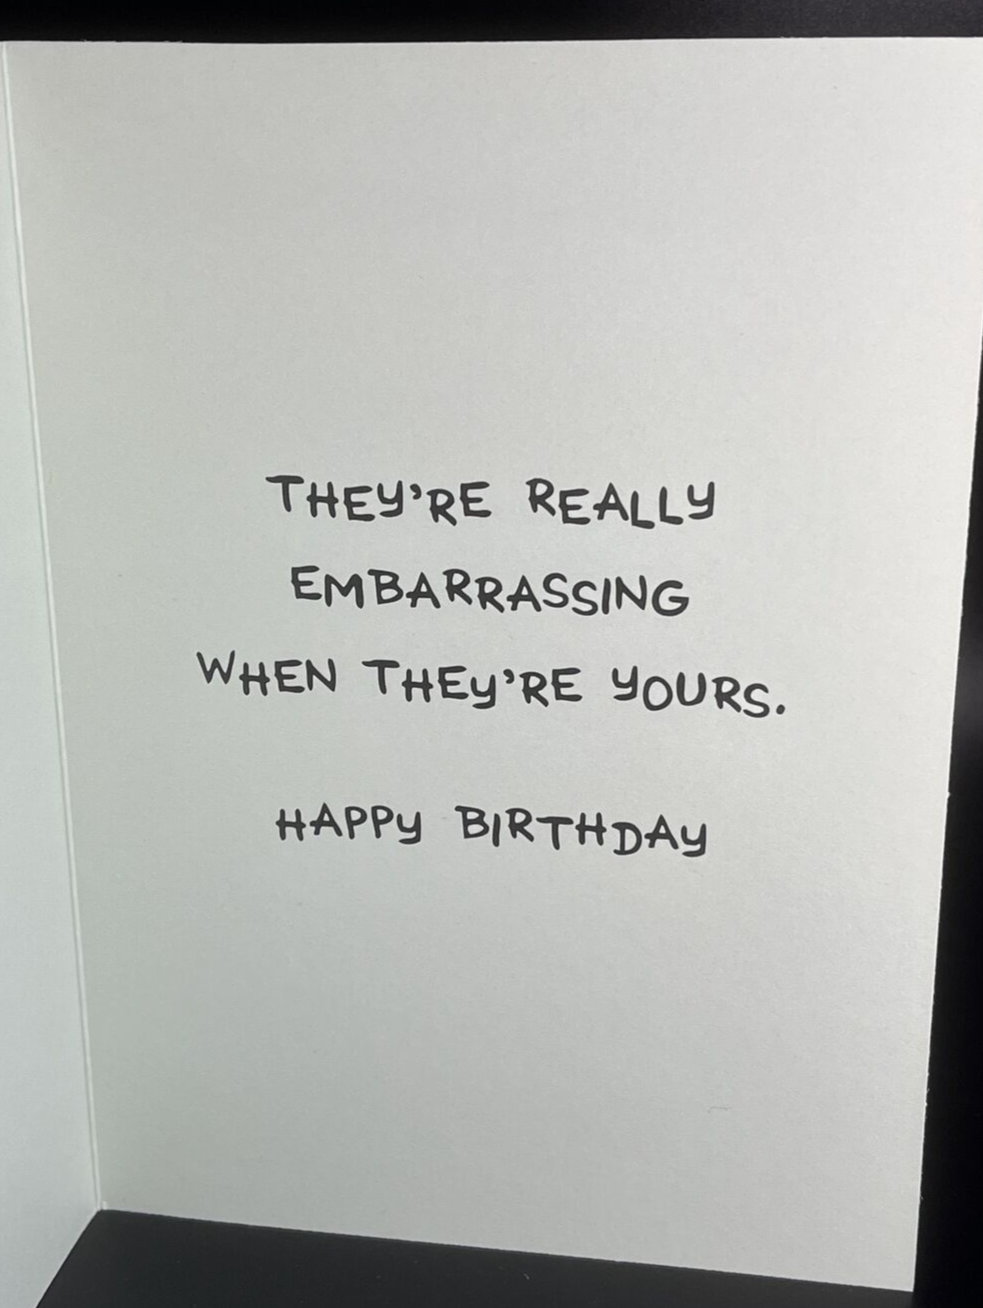 THEY'RE REALLY
EMBARRASSING
WHEN THEY'RE YOURS.
HAPPY BIRTHDAY